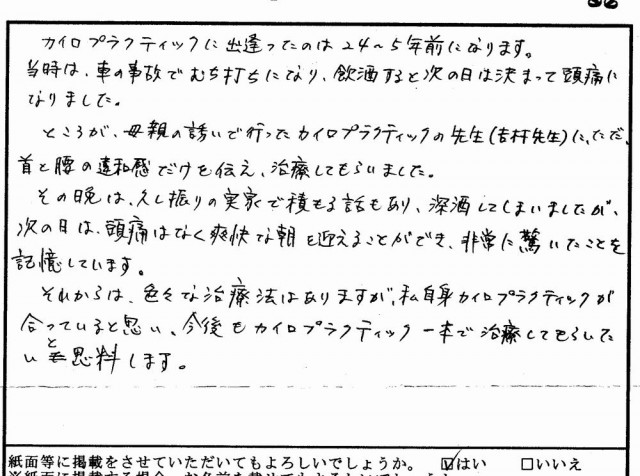 カイロプラクティックに出逢ったのは24〜5年前になります。
当時は、車の事故でむち打ちになり、飲酒すると次の日は決まって頭痛に
なりました。
ところが、母親の誘いで行ったカイロプラクティックの先生(吉村先生)に、ただ、
首と腰の違和感だけを伝え、治療してもらいました。
その晩は、久し振りの実家で積もる話もあり、深酒してしまいましたが、
次の日は、頭痛はなく爽快な朝を迎えることができ、非常に驚いたことを
記憶しています。
それからは、色々な治療法はありますが、私自身カイロプラクティックが
合っていると思い、今後もカイロプラクティック一本で治療してもらいた
いと思料します。
紙面等に掲載をさせていただいてもよろしいでしょうか。 ☑はい □いいえ